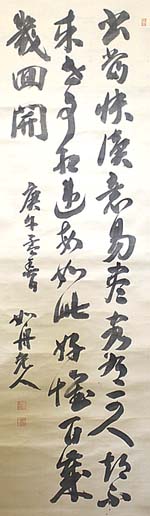 書當快意讀易盡客有可人期不
來世事相違每如此好懷百歲
幾回開
庚午孟春
老人